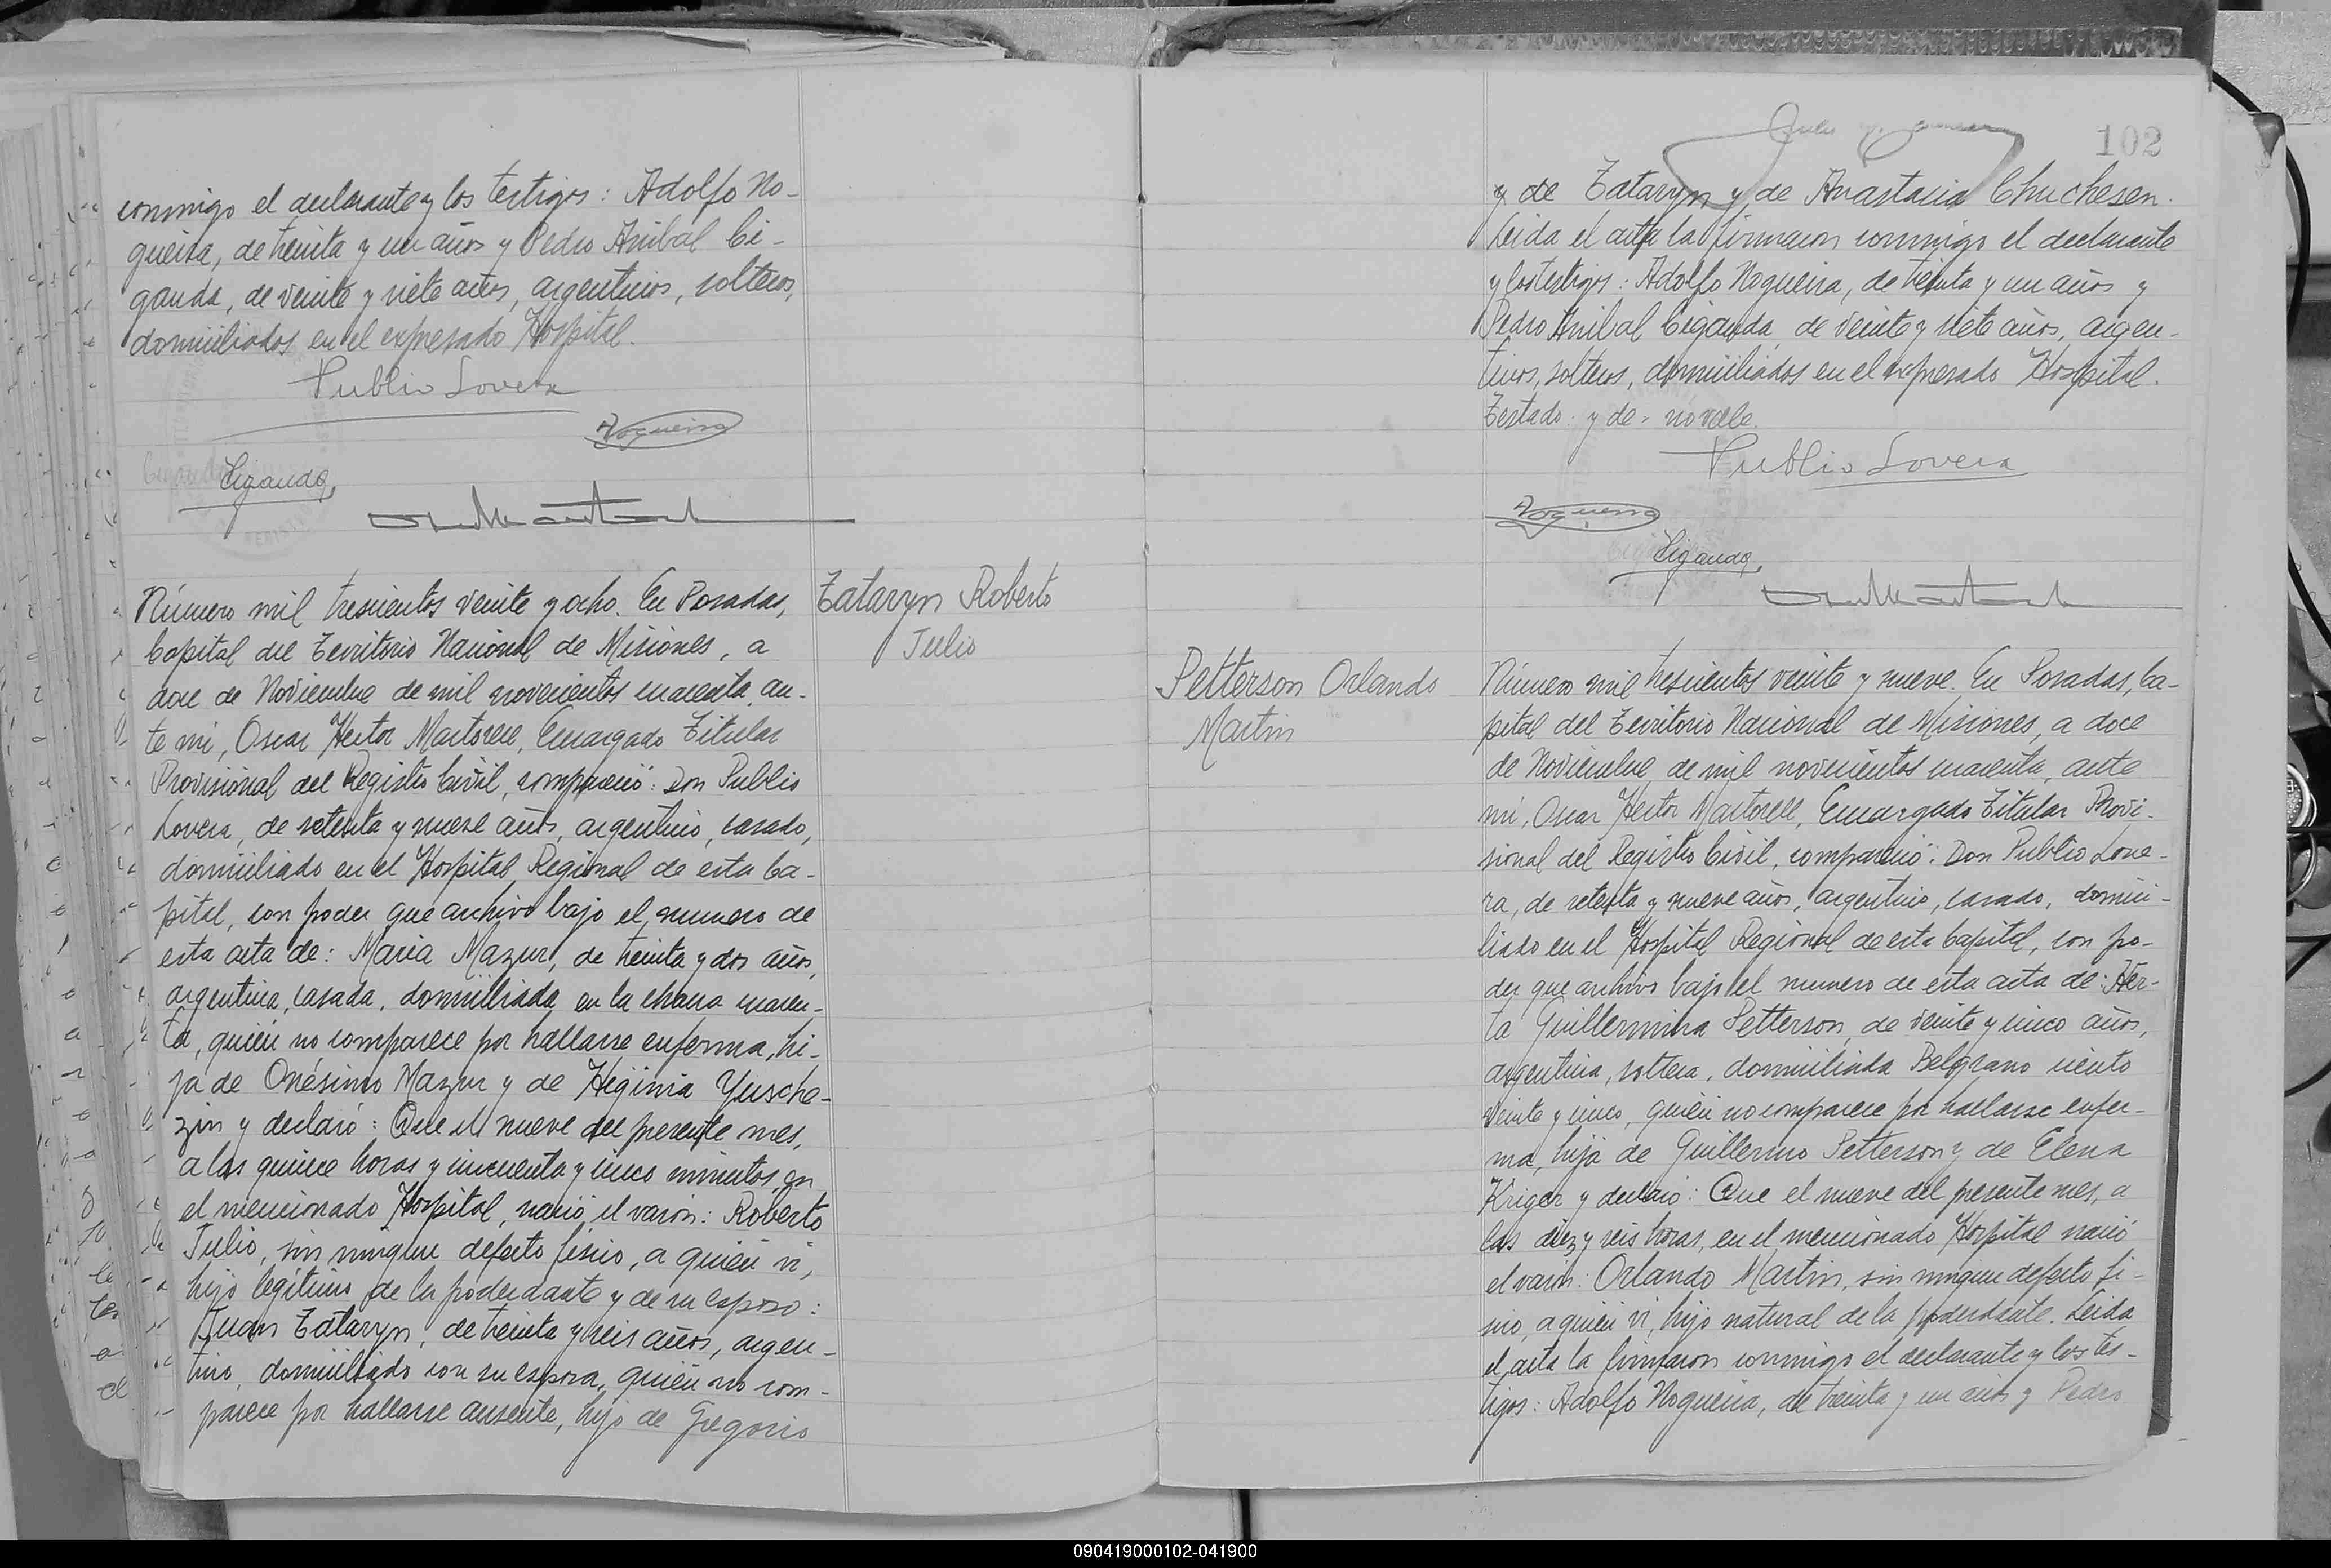 conmigo el declarante y los testigos: Adolfo No-
gueira, de treinta y un años y Pedro Anibal Ci-
ganda, de veinte y siete años, argentinos, solteros,
domiciliados en el expresado Hospital.
Publio Lovera
Nogueira
Ciganda
Número mil trescientos veinte y ocho. En Posadas,
Capital del Territorio Nacional de Misiones, a
doce de Noviembre de mil novecientos cuarenta, an-
te mi, Oscar Hector Martorell, Encargado Titular
Provisional del Registro Civil, compareció: Don Publio
Lovera, de setenta y nueve años, argentino, casado,
domiciliado en el Hospital Regional de esta Ca-
pital, con poder que archivo bajo el numero de
esta acta de: Maria Mazur, de treinta y dos años,
argentina, casada, domiciliada en la chacra cuaren-
ta, quién no comparece por hallarse enferma, hi-
ja de Onésimo Mazur y de Higinia Yusche-
zin y declaró: Que el nueve del presente mes,
a las quince horas y cincuenta y cinco minutos, en
el mencionado Hospital, nació el varón: Roberto
Julio, sin ningun defecto fisico, a quién vi,
hijo legitimo de la poderdante y de su esposo:
Juan Tataryn, de treinta y seis años, argen-
tino, domiciliado con su esposa, quién no com-
parece por hallarse ausente, hijo de Gregorio
Tataryn Roberto
Julio
102
y de Tataryn y de Anastacia Chuchesen.
Leida el acta la firmaron conmigo el declarante
y los testigos: Adolfo Nogueira, de treinta y un años y
Pedro Anibal Ciganda, de veinte y siete años, argen-
tinos, solteros, domiciliados en el expresado Hospital.
Testado: y de - no vale.
Publio Lovera
Nogueira
Ciganda
Petterson Orlando
Martin
Número mil trescientos veinte y nueve. En Posadas, Ca-
pital del Territorio Nacional de Misiones, a doce
de Noviembre de mil novecientos cuarenta, ante
mi, Oscar Hector Martorell, Encargado Titular Provi-
sional del Registro Civil, compareció: Don Publio Love-
ra, de setenta y nueve años, argentino, casado, domici-
liado en el Hospital Regional de esta Capital, con po-
der que archivo bajo el numero de esta acta de: Her-
ta Guillermina Petterson, de veinte y cinco años,
argentina, soltera, domiciliada Belgrano ciento
veinte y cinco, quién no comparece por hallarse enfer-
ma, hija de Guillermo Petterson y de Elena
Kriger y declaró: Que el nueve del presente mes, a
las diez y seis horas, en el mencionado Hospital nació
el varón: Orlando Martin, sin ningun defecto fi-
sico, a quién vi, hijo natural de la poderdante. Leida
el acta la firmaron conmigo el declarante y los tes-
tigos: Adolfo Nogueira, de treinta y un años y Pedro
090419000102-041900